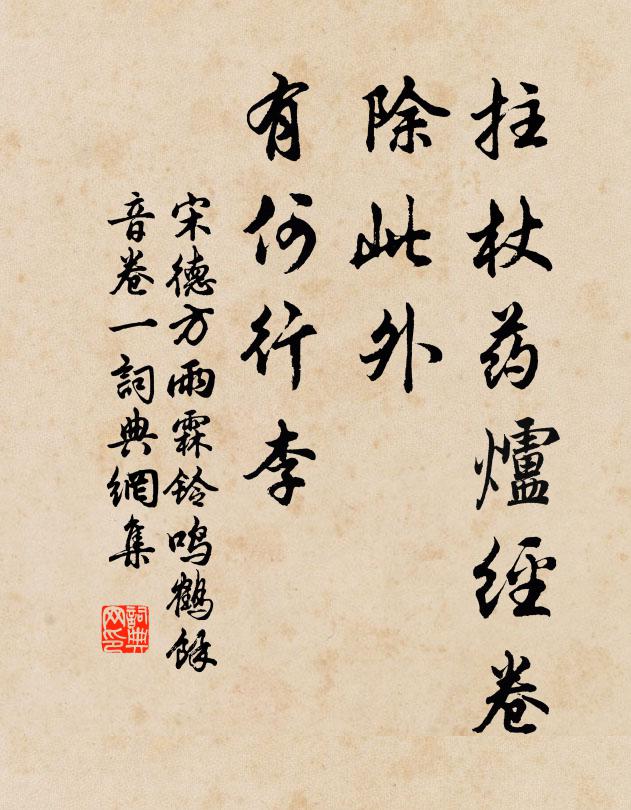 拄杖药爐經卷
除此外
有何行李
宋德方雨霖鈴鳴鶴餘
音卷一詞典網集
詞典网印